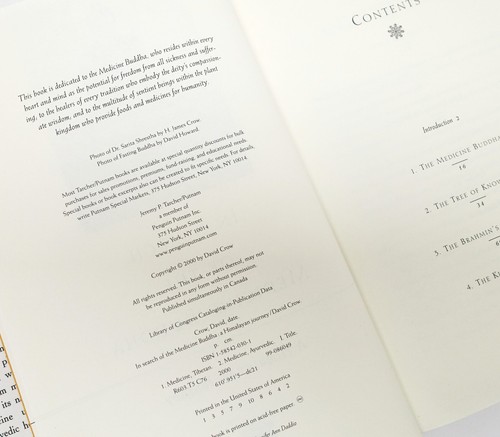 This book is dedicated to the Medicine Buddha, who resides within every
heart and mind as the potential for freedom from all sickness and suffer-
ing, to the healers of every tradition who embody the deity's compassion-
ate wisdom, and to the multitude of sentient beings within the plant
kingdom who provide foods and medicines for humanity.
Photo of Dr. Sarita Shrestha by H. James Crow.
Photo of Fasting Buddha by David Howard.
Most Tarcher/Putnam books are available at special quantity discounts for bulk
purchases for sales promotions, premiums, fund-raising, and educational needs.
Special books or book excerpts also can be created to fit specific needs. For details,
write Putnam Special Markets, 375 Hudson Street, New York, NY 10014.
Jeremy P. Tarcher/Putnam
a member of
Penguin Putnam Inc.
375 Hudson Street
New York, NY 10014
www.penguinputnam.com
Copyright © 2000 by David Crow
All rights reserved. This book, or parts thereof, may not
be reproduced in any form without permission.
Published simultaneously in Canada
Library of Congress Cataloging-in-Publication Data
Crow, David, date.
In search of the Medicine Buddha: a Himalayan journey / David Crow.
p. cm.
ISBN 1-58542-030-1
1. Medicine, Tibetan. 2. Medicine, Ayurvedic. I. Title.
R603.T5 C76 2000 99-086049
610'.951'5—dc21
Printed in the United States of America
1 3 5 7 9 10 8 6 4 2
book is printed on acid-free paper.
CONTENTS
Introduction 2
1. THE MEDICINE BUDDHA
16
2. THE TREE OF KNO
34
3. THE BRAHMIN'S
4. THE K